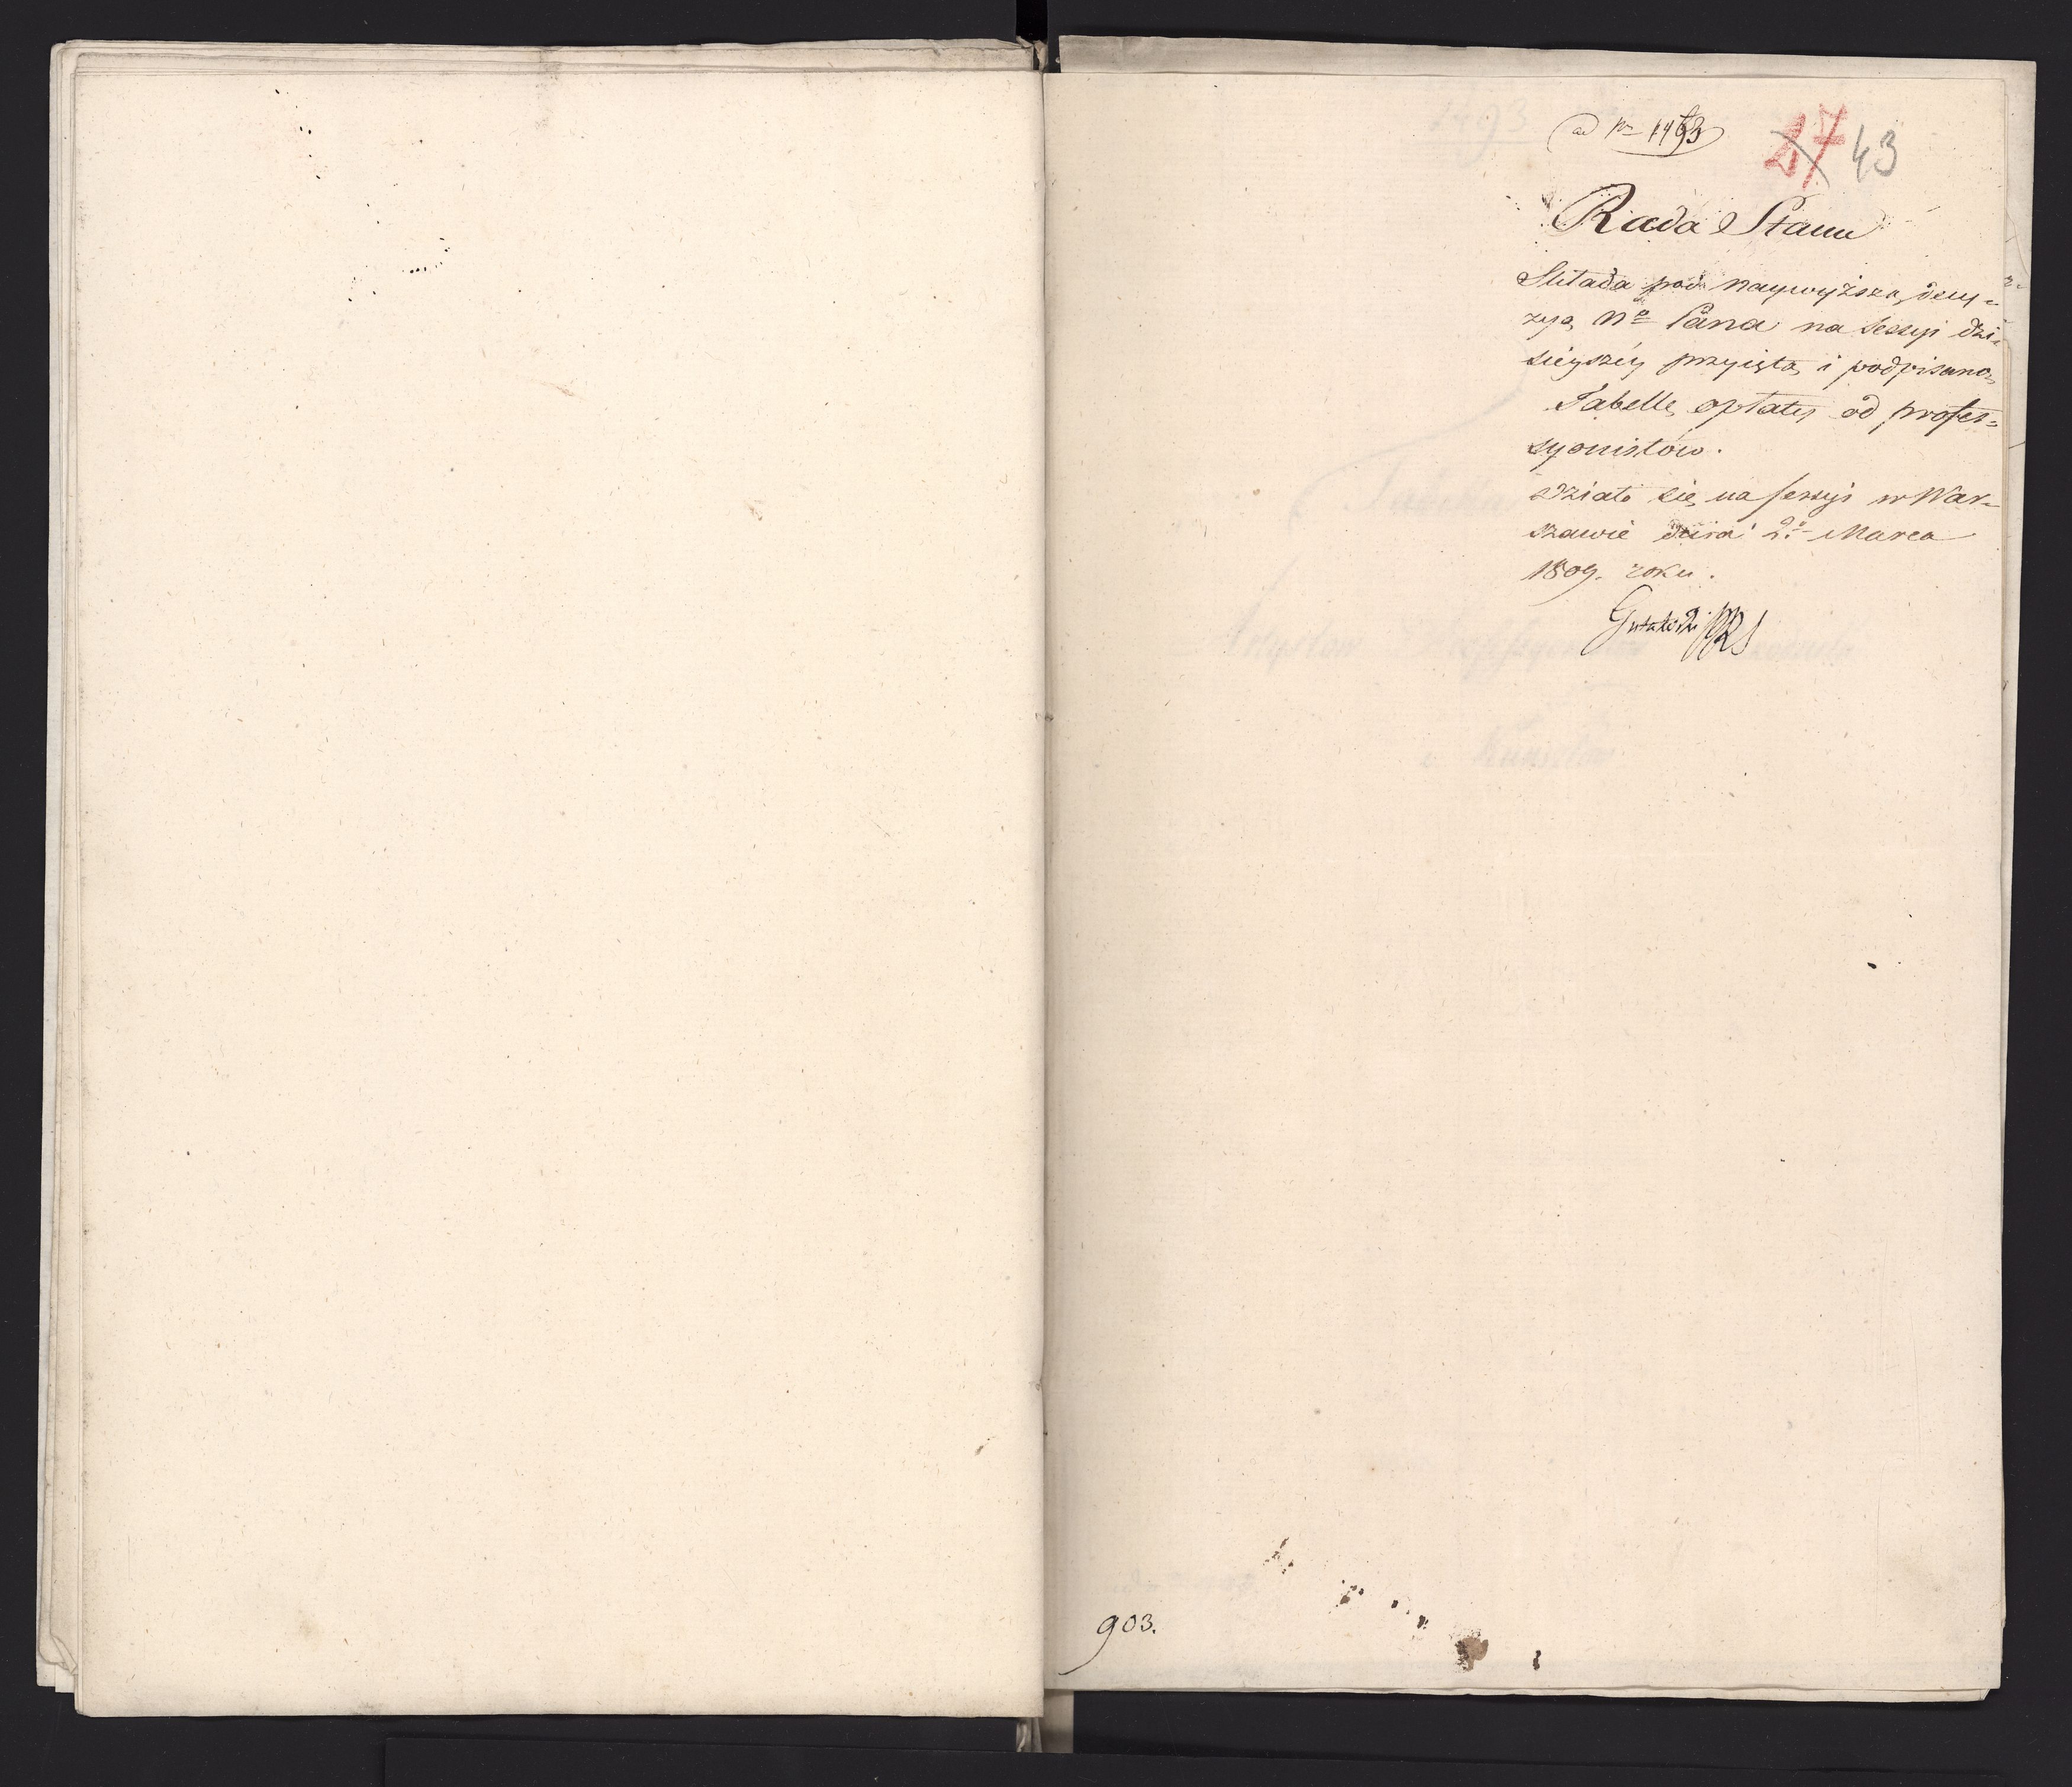 ad Nr 1493
27 43
Rada Stanu
Składa pod naywyższą decy-
zyą Nº Pana na sessyi dzi-
sieyszéy przyiętą i podpisaną
Tabellę opłaty od profes-
syonistów.
Działo się na sessyi w War-
szawie dnia 2º Marca
1809. roku.
Gutakowski PRS
903.